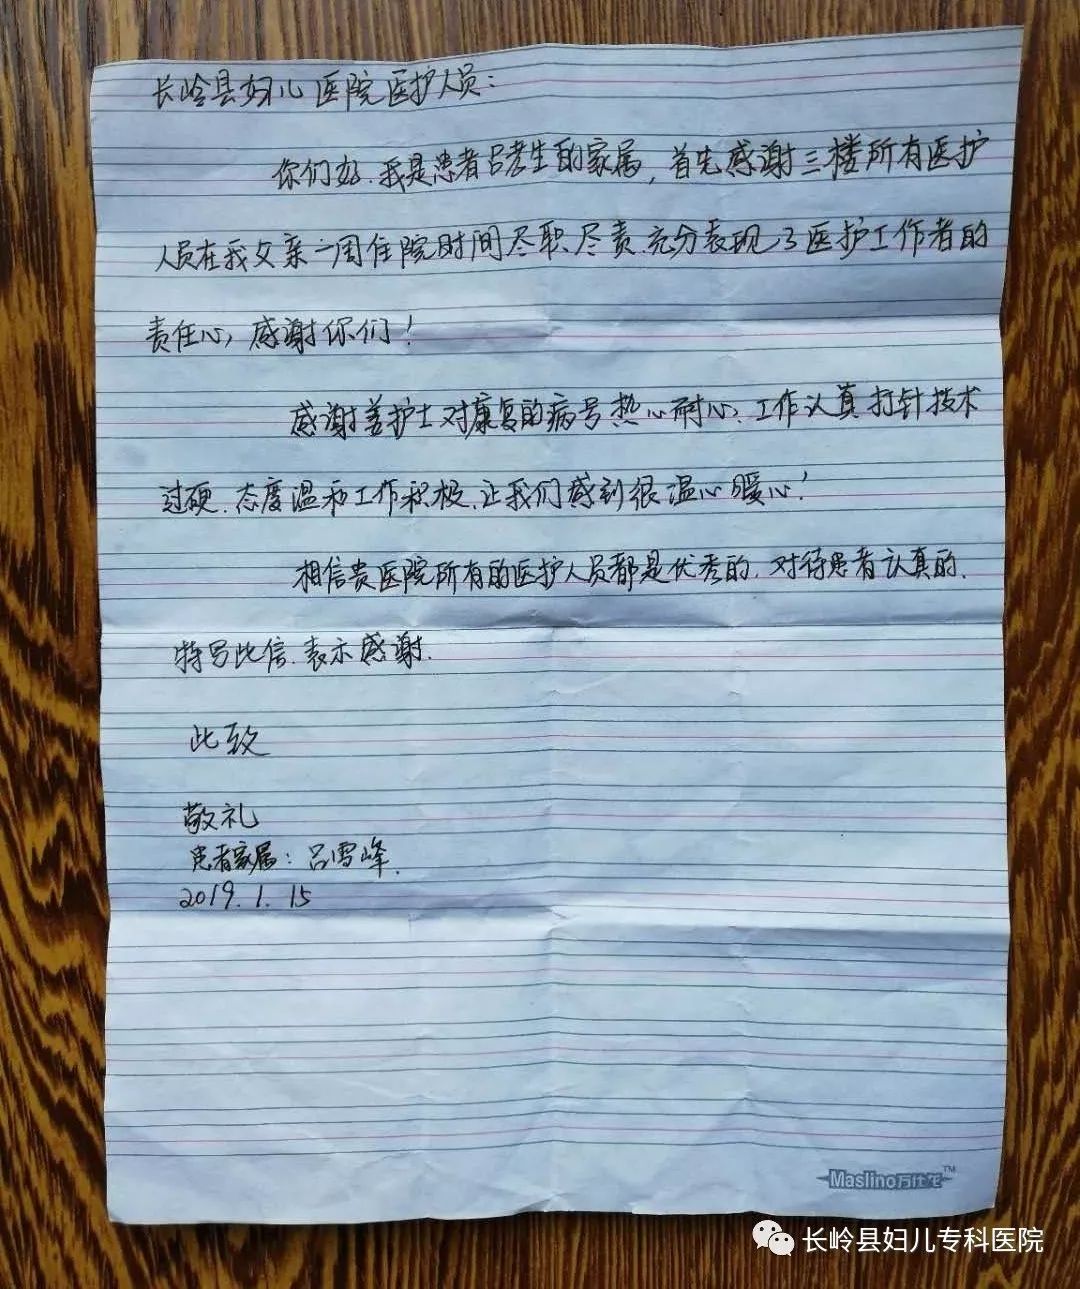 长岭县妇儿医院医护人员：
你们好.我是患者吕孝生的家属，首先感谢三楼所有医护
人员在我父亲一周住院时间尽职尽责.充分表现了医护工作者的
责任心，感谢你们！
感谢姜护士对康复的病号热心耐心、工作认真打针技术
过硬.态度温和工作积极.让我们感到很温心暖心！
相信贵医院所有的医护人员都是优秀的.对待患者认真的.
特写此信.表示感谢.
此致
敬礼
患者家属：吕雪峰.
2019.1.15
Maslino万仕龙™
长岭县妇儿专科医院